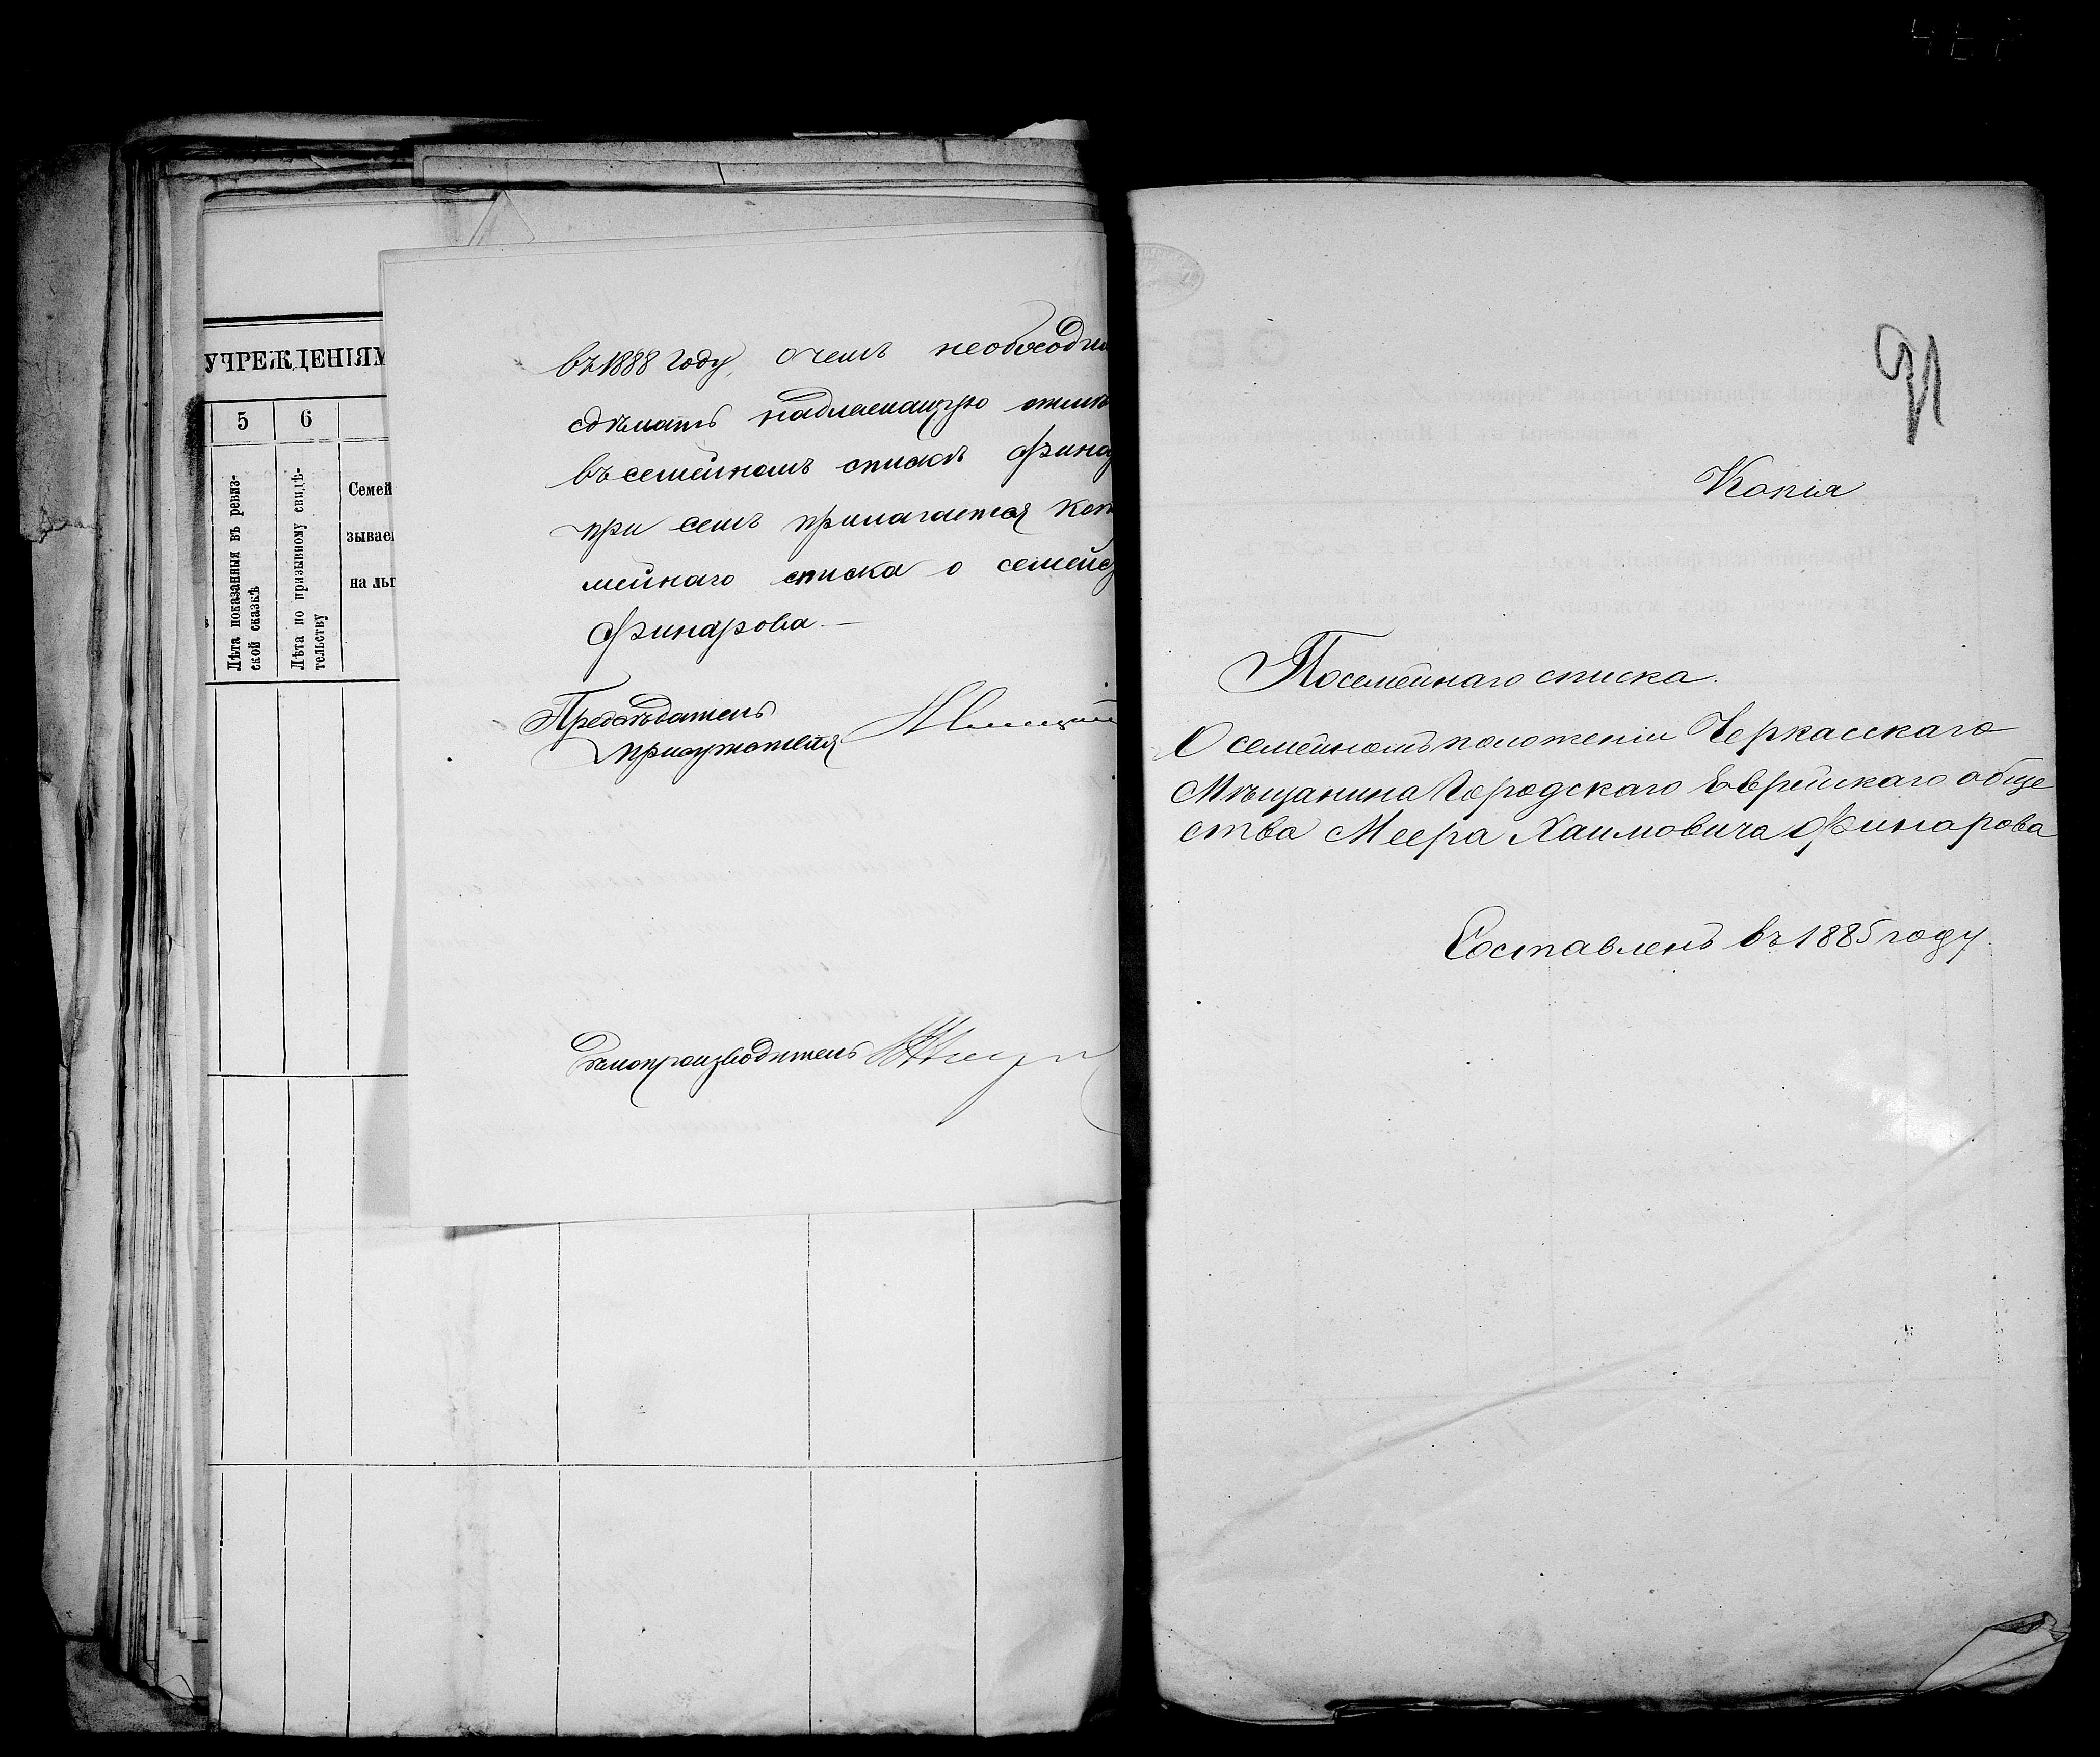 УЧРЕЖДЕНІЯМ
5
6
Лѣта показанныя въ ревиз-
ской сказкѣ
Лѣта по призывному свидѣ-
тельству
Семей
зывае
на льг
въ 1888 году, о чемъ необходи
сдѣлать надлежащую отмѣ
въ семейномъ спискѣ Фина
при семъ прилагается коп
мейнаго списка о семейс
Финарова
Предсѣдатель
присутствія
Дѣлопроизводитель
91
Копія
Посемейнаго списка.
О семейномъ положеніи Черкасскаго
Мѣщанина Городскаго Еврейскаго обще
ства Меера Хаимовича Финарова
Составленъ въ 1885 году.